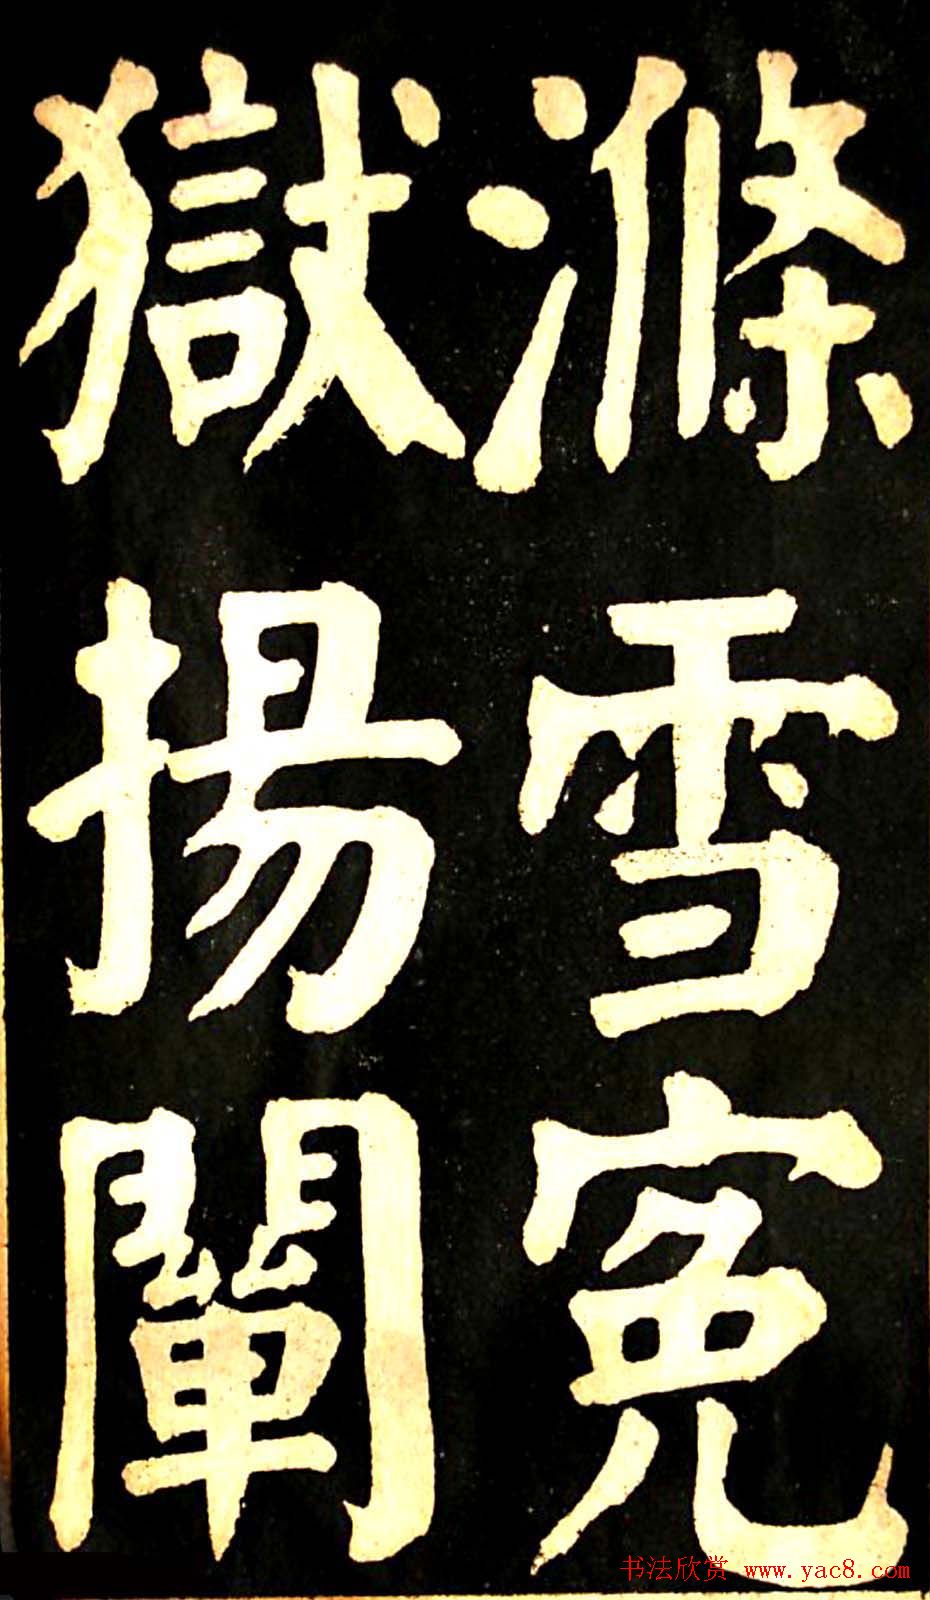 滌雪寃
獄揚闡
书法欣赏 www.yac8.com